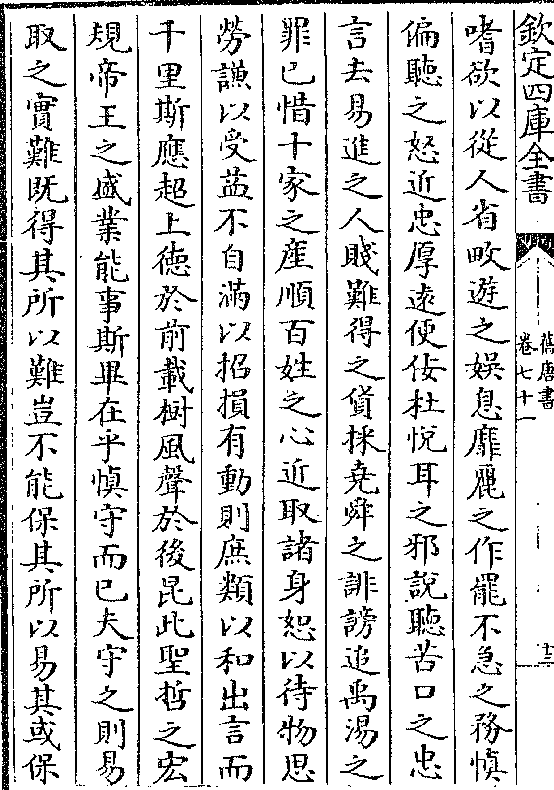 欽定四庫全書
舊唐書
卷七十一
十三
嗜欲以從人省畋遊之娛息靡麗之作罷不急之務慎
偏聽之怒近忠厚遠便佞杜悅耳之邪說聽苦口之忠
言去易進之人賤難得之貨採堯舜之誹謗追禹湯之
罪已惜十家之產順百姓之心近取諸身恕以待物思
勞謙以受益不自滿以招損有動則庶類以和出言而
千里斯應超上徳於前載樹風聲於後昆此聖哲之宏
規帝王之盛業能事斯畢在乎慎守而已夫守之則易
取之實難既得其所以難豈不能保其所以易其或保